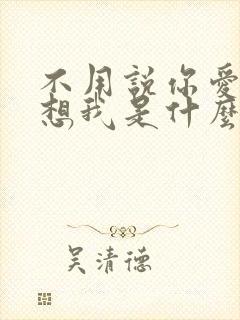 不用說你愛
想我是什麼
吴清德